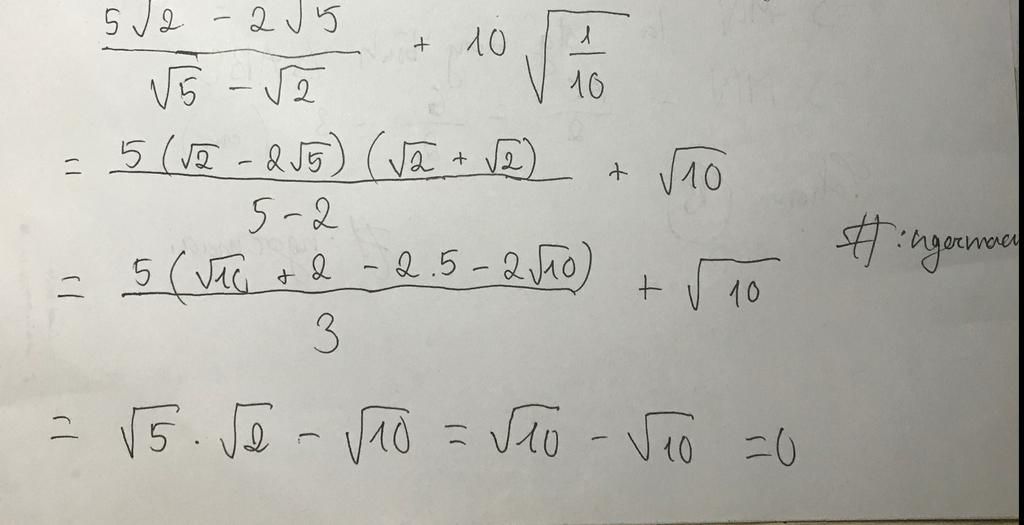 (5√2 - 2√5)/(√5 - √2) + 10√(1/10)
= (5(√2 - 2√5)(√2 + √2))/(5 - 2) + √10
= (5(√10 + 2 - 2.5 - 2√10))/3 + √10
= √5 . √2 - √10 = √10 - √10 = 0